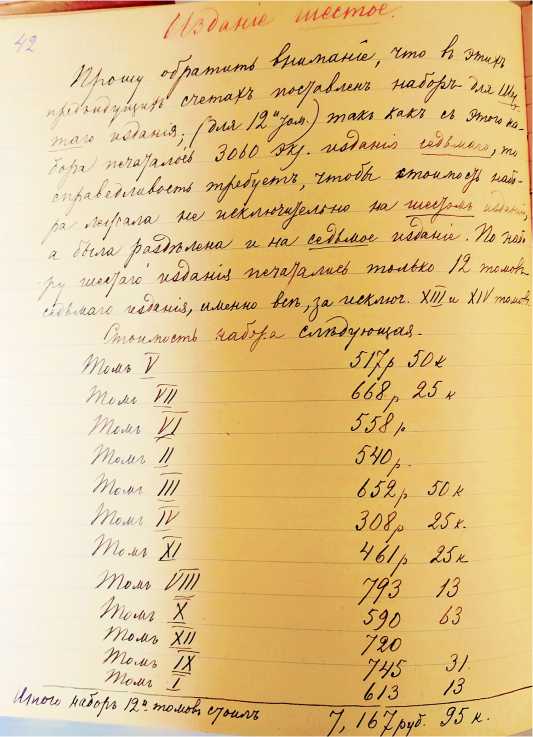 42
Изданіе шестое.
Прошу обратить вниманіе, что въ этихъ
предъидущихъ счетахъ поставленъ наборъ для Шес
таго изданія; (для 12и том.) такъ какъ съ этого на-
бора печаталось 3060 экз. изданія седьмого, то
справедливость требуетъ, чтобы стоимость набо-
ра лежала не исключительно на шестомъ изданіи,
а была раздѣлена и на седьмое изданіе. По набо
ру шестаго изданія печатались только 12 томовъ
седьмаго изданія, именно всѣ, за исключ. XIII и XIV томовъ
Стоимость набора слѣдующая.
Томъ V 517р 50к
Томъ VII 668р 25к
Томъ VI 558р
Томъ II 540р.
Томъ III 652р 50к
Томъ IV 308р 25к.
Томъ XI 461р 25к
Томъ VIII 793 13
Томъ X 590 63
Томъ XII 720
Томъ IX 745 31.
Томъ I 613 13
Итого наборъ 12и томовъ стоилъ 7,167руб. 95к.